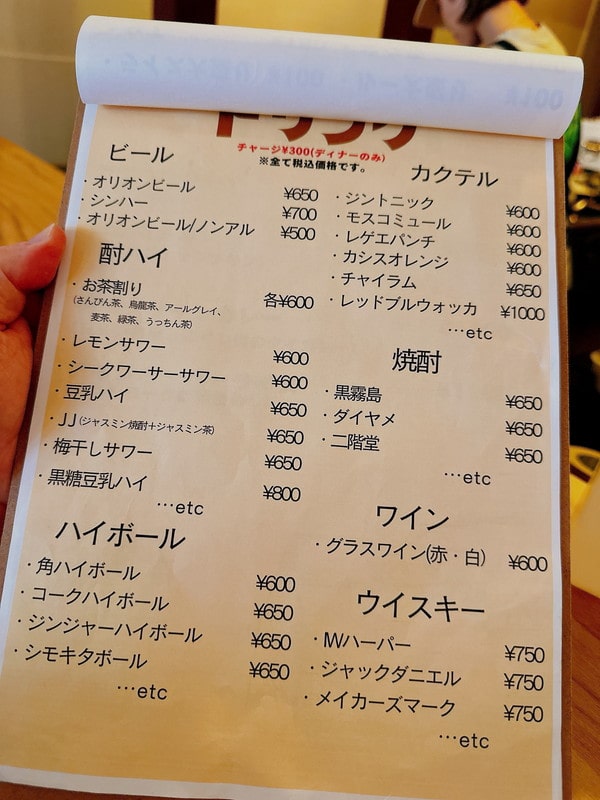 ドリンク
チャージ¥300(ディナーのみ)
※全て税込価格です。
ビール
・オリオンビール ¥650
・シンハー ¥700
・オリオンビール/ノンアル ¥500
酎ハイ
・お茶割り 各¥600
(さんぴん茶、烏龍茶、アールグレイ、
麦茶、緑茶、うっちん茶)
・レモンサワー ¥600
・シークワーサーサワー ¥600
・豆乳ハイ ¥650
・JJ(ジャスミン焼酎+ジャスミン茶) ¥650
・梅干しサワー ¥650
・黒糖豆乳ハイ ¥800
…etc
ハイボール
・角ハイボール ¥600
・コークハイボール ¥650
・ジンジャーハイボール ¥650
・シモキタボール ¥650
…etc
カクテル
・ジントニック ¥600
・モスコミュール ¥600
・レゲエパンチ ¥600
・カシスオレンジ ¥600
・チャイラム ¥650
・レッドブルウォッカ ¥1000
…etc
焼酎
・黒霧島 ¥650
・ダイヤメ ¥650
・二階堂 ¥650
…etc
ワイン
・グラスワイン(赤・白) ¥600
ウイスキー
・IWハーパー ¥750
・ジャックダニエル ¥750
・メイカーズマーク ¥750
…etc